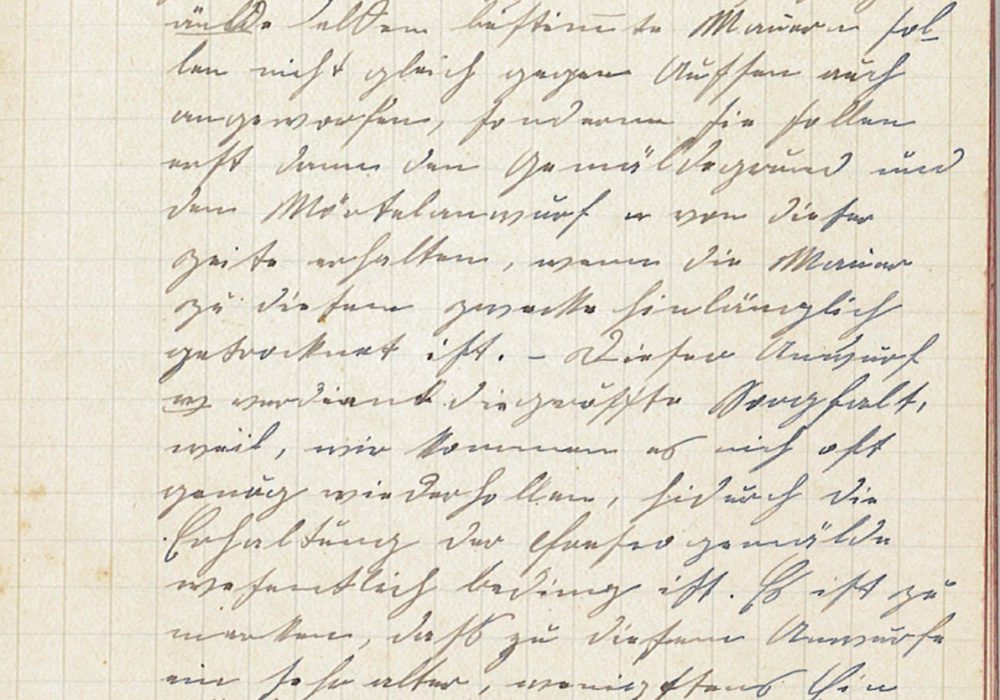 bestimmte Mauern sol-
len nicht gleich gegen Aussen auch
angeworfen, sondern sie sollen
erst dann den Gemäldegrund und
den Mörtelanwurf von dieser
Seite erhalten, wenn die Mauer
zu diesem Zwecke hinlänglich
getrocknet ist. – Dieser Anwurf
verdient die grösste Sorgfalt,
weil, wir kommen es nich oft
genug wiederhollen, hidurch die
Erhaltung der Fresco gemälde
wesentlich beding ist. Es ist zu
merken, dass zu diesem Anwurfe
ein sehr alter, wenigstens